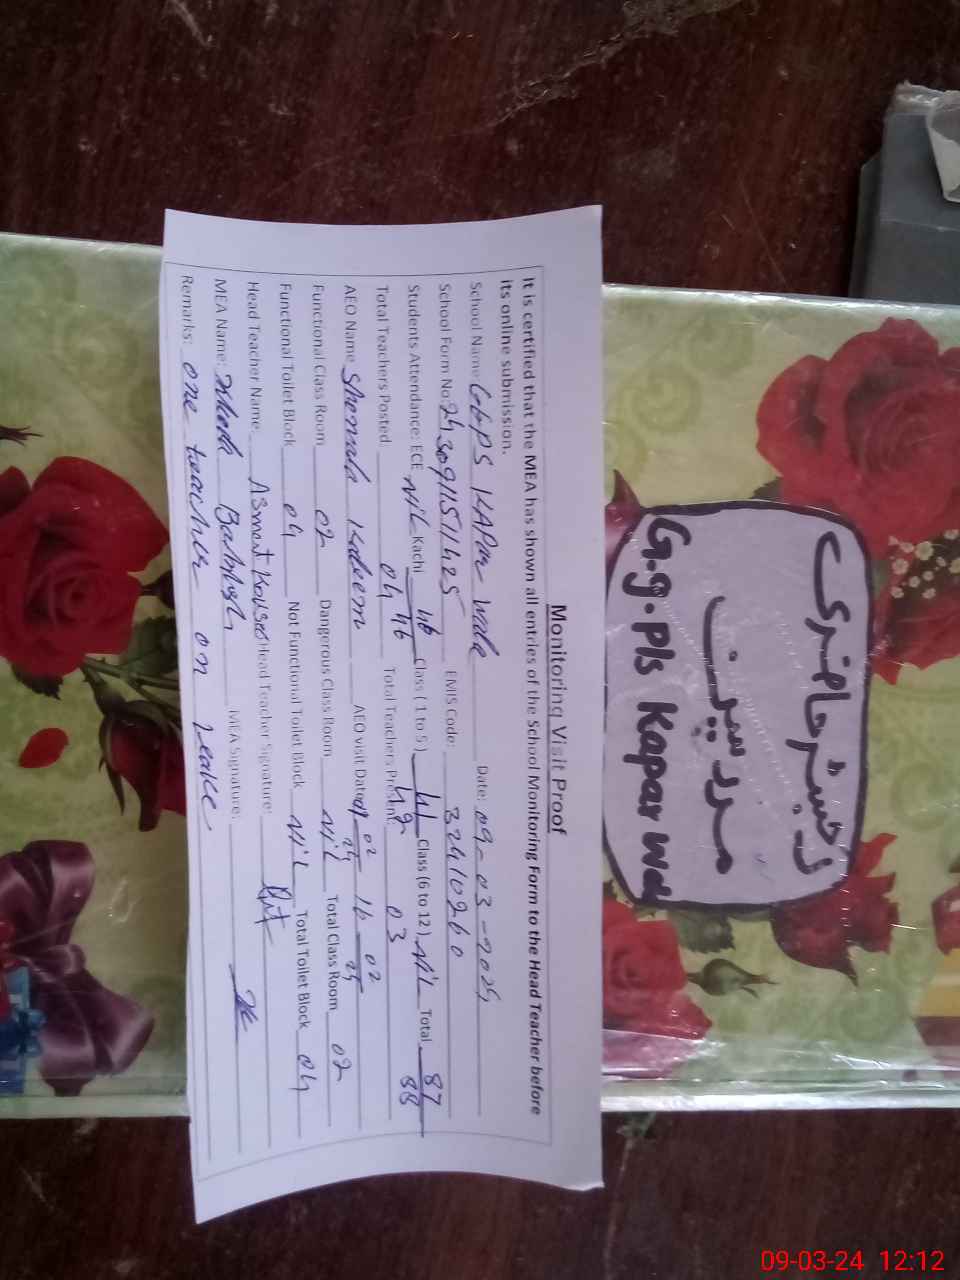 رجسٹر حاضری
مدرسین
G.g.Pls Kapar Wal
Monitoring Visit Proof
It is certified that the MEA has shown all entries of the School Monitoring Form to the Head Teacher before
its online submission.
School Name GGPS KAPar wala Date: 09-03-2024
School Form No: EMIS Code: 32410260
Students Attendance: ECE Nil Kachi 46/46 Class (1 to 5) 41/42 Class (6 to 12) Nil Total 87/88
Total Teachers Posted 04 Total Teachers Present 03
AEO Name Shemula Kaleem AEO visit Date
Functional Class Room 02 Dangerous Class Room Nil Total Class Room 02
Functional Toilet Block 04 Not Functional Toilet Block Nil Total Toilet Block 04
Head Teacher Name: Asmat Kausar Head Teacher Signature:
MEA Name: MEA Signature:
Remarks: one teacher on leave
09-03-24 12:12